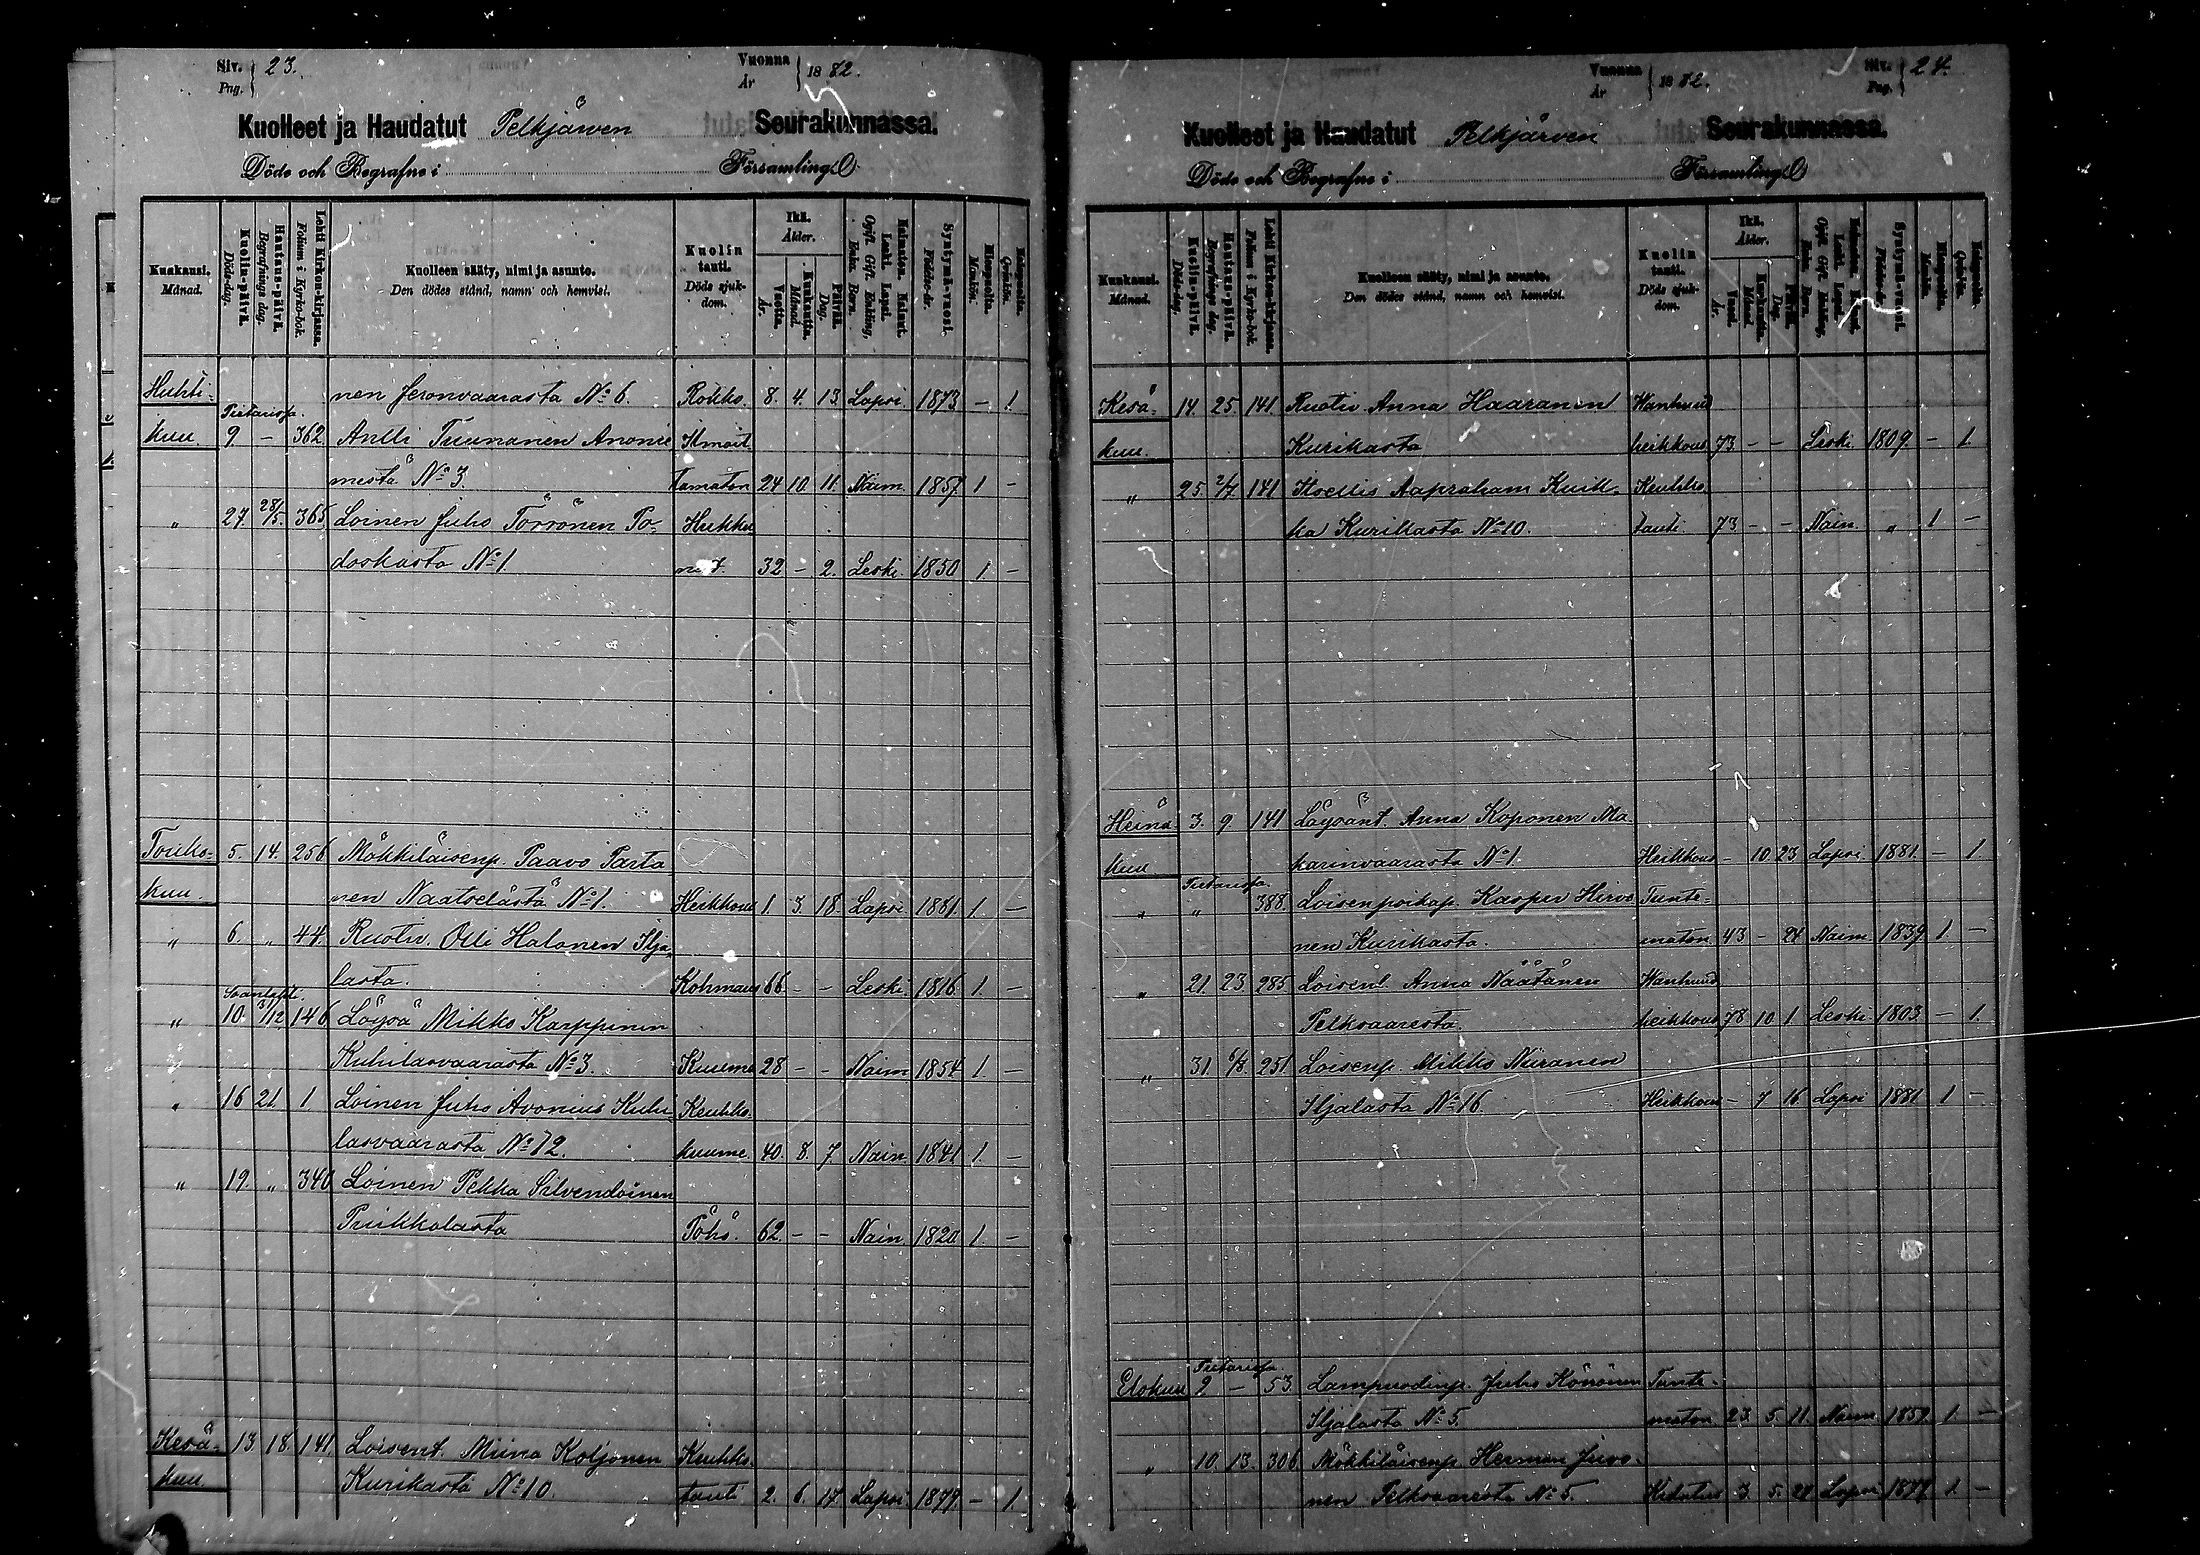 Siv. 23. Vuonna 1882.
Pag. År
Kuolleet ja Haudatut Pelkjärwen Seurakunnassa.
Döde och Begrafne i Församling
Kuukausi. Månad. Kuolin-päivä. Döds-dag. Hautaus-päivä. Begrafnings dag. Lehti Kirkon-kirjassa. Folium i Kyrko-bok. Kuolleen sääty, nimi ja asunto. Den dödes stånd, namn och hemvist. Kuolin tauti. Döds sjukdom. Ikä. Ålder. Vuotta. År. Kuukautta. Månad. Päivä. Dag. Naimaton. Nainut. Leski. Lapsi. Ogift. Gift. Enkling, Enka. Barn. Syntymä-vuosi. Födelse-år. Miespuolia. Mankön. Vaimopuolia. Qvinkön.
Huhti- nen Jeronvaarasta No 6. Rokko. 8. 4. 13. Lapsi. 1873 – 1.
Pietarissa.
kuu. 9 – 362 Antti Tuunanen Anonie
mestä No 3. tamaton 24 10. 11. Naim. 1857. 1 –
" 27. 28/5. 365 Loinen Juho Törrönen To-
doskasta No 1. 32 – 2. Leski. 1850 1 –
Touko- 5. 14. 256 Mökkiläisenp. Paavo Parta
kuu. nen Naatselästä No 1. Heikkous 1. 3. 18 Lapsi 1881 1. –
" 6. " 44. Ruotiv. Olli Halonen Ilja
lasta. Kohmaus 66 – – Leski. 1816 1. –
" 10. 146 Löysä Mikko Karppinen
Kuhilasvaarasta No 3. Kuume 28 – – Naim 1854 1. –
" 16 21. 1. Loinen Juho Avonius Kuhi Keuhko
lasvaarasta No 12. kuume 40. 8. 7. Nain. 1841 1. –
" 19. " 340 Loinen Pekka Silvendoinen
Puikkolasta Pöhö. 62. – – Nain. 1820 1. –
Kesä- 13. 18. 141. Loisent. Miina Koljonen Keuhko
kuu. Kurikasta No 10. tauti 2. 6. 17. Lapsi. 1879. – 1.
Vuonna 1882. Siv. 24.
År Pag.
Kuolleet ja Haudatut Pelkjärven Seurakunnassa.
Döde och Begrafne i Församling
Kuukausi. Månad. Kuolin-päivä. Döds-dag. Hautaus-päivä. Begrafnings dag. Lehti Kirkon-kirjassa. Folium i Kyrko-bok. Kuolleen sääty, nimi ja asunto. Den dödes stånd, namn och hemvist. Kuolin tauti. Döds sjukdom. Ikä. Ålder. Vuosi. År. Kuukautta. Månad. Päivää. Dag. Naimaton. Nainut. Leski. Lapsi. Ogift. Gift. Enkling, Enka. Barn. Syntymä-vuosi. Födelse-år. Miespuolia. Mankön. Vaimopuolia. Qvinkön.
Kesä- 14. 25. 141 Ruotiv Anna Haaranen Wanhuud
kuu. Kurikasta heikkous 73 – – Leski. 1809. – 1.
" 25. 2/7 141 Itsellis Aapraham Kuik- Keuhko
ka Kurikasta No 10. tauti. 73 – – Nain. " 1 –
Heinä 3. 9 141 Löysänt. Anna Koponen Ma
kuu karinvaarasta No 1. Heikkous – 10. 23 Lapsi 1881. – 1.
Pietarissa.
" " 388. Loisenpoikap. Kasper Hirvo Tunte-
nen Kurikasta. maton 43 – 24 Naim. 1839 1. –
" 21. 23. 285 Loisenl. Anna Näätänen Wanhuud
Pelkvaarasta. heikkous 78 10 1. Leski 1803 – 1.
" 31. 6/8. 251 Loisenp. Mikko Niiranen
Iljalasta No 16. Heikkous – 7 16 Lapsi 1881 1 –
Pietarissa.
Elokuu 9 – 53. Lampuodinp. Juho Könönen Tunte-
Iljalasta No 5. maton 23. 5. 11. Naim 1859. 1. –
" 10. 13. 306 Mökkiläisenp Herman Juvo-
nen Pelkvaarasta No 5. Kidutus 3. 5. Lapsi 1. –